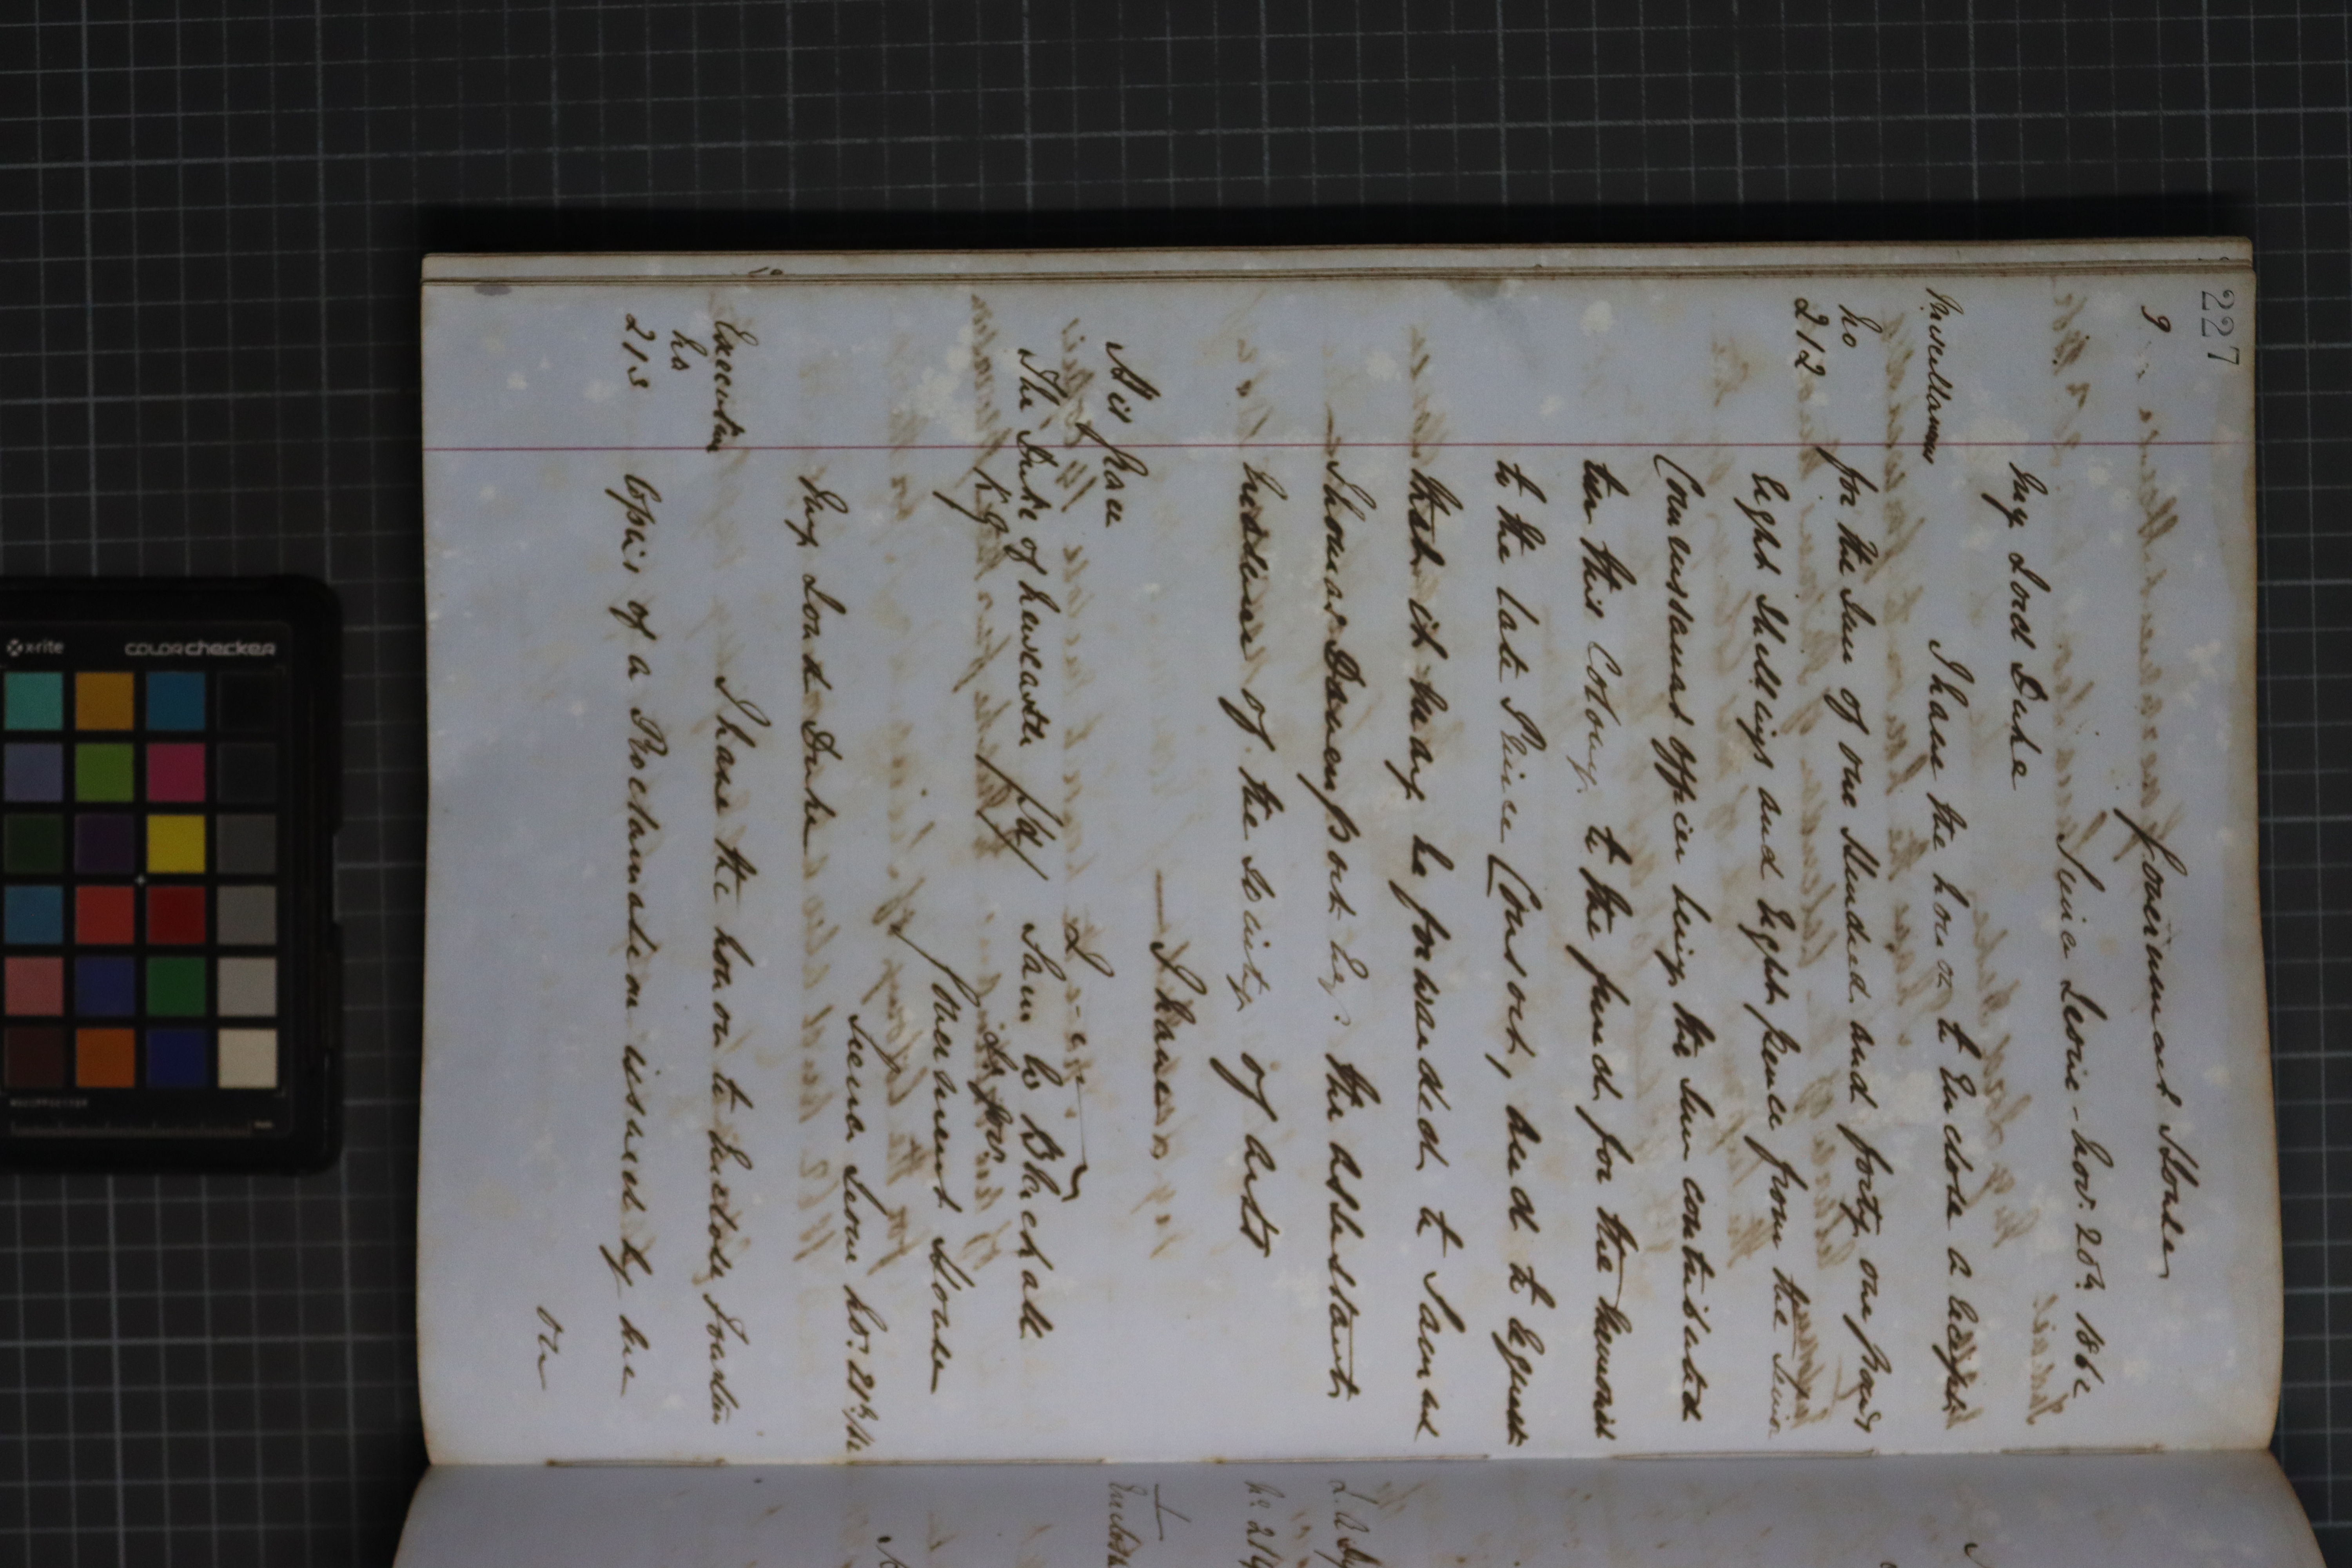 227
9
Government House
Sierra Leone - Nov: 20th 1862
My Lord Duke
Miscellaneous
No
212
I have the honor to Enclose a receipt
for the Sum of one Hundred and forty one pounds
Eight Shillings and Eight pence from the Senior
Commissariat officer being the Sum contributed
in this Colony to the fund for the Memorial
to the late Prince Consort, and to request
that it may be forwarded to Samuel
Thomas Davenport Esq: the assistant
of the Society of arts
I have
His Grace
The Duke of Newcastle
K. G.
Sam W Blackall
Government House
Sierra Leone No: 21st/62
My Lord Duke
Executive
No
213
I have the honor to Enclose fourteen
Copies of a Proclamation issued by me
on
x-rite
COLORchecker
No. 214